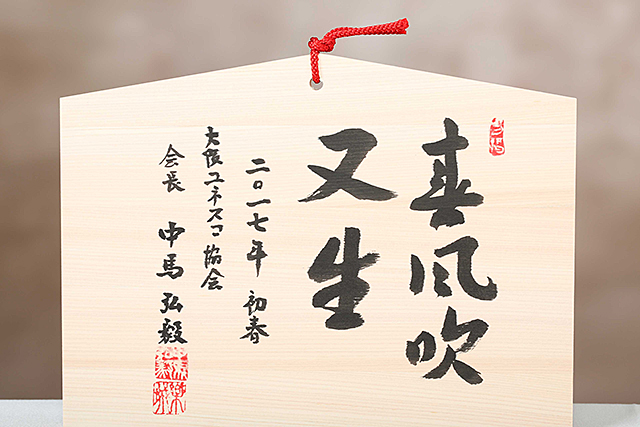 春風吹
又生
二〇一七年 初春
大阪ユネスコ協会
会長 中馬弘毅